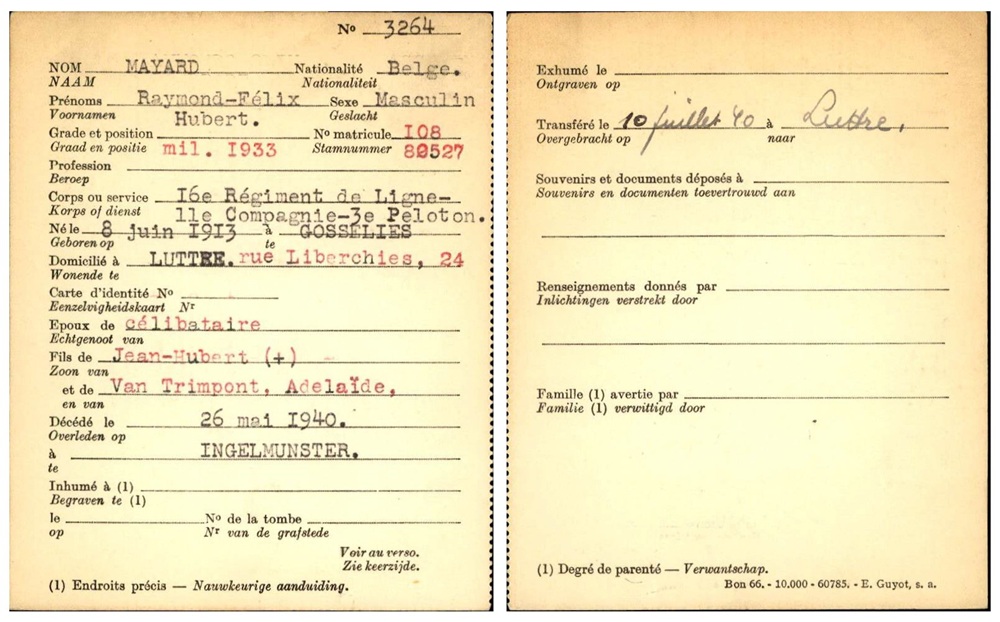 Nº 3264
NOM MAYARD Nationalité Belge.
NAAM Nationaliteit
Prénoms Raymond-Félix Sexe Masculin
Voornamen Hubert. Geslacht
Grade et position Nº matricule I08
Graad en positie mil. I933 Stamnummer 80527
Profession
Beroep
Corps ou service I6e Régiment de Ligne-
Korps of dienst 11e Compagnie-3e Peloton.
Né le 8 juin I9I3 à GOSSELIES
Geboren op te
Domicilié à LUTTRE. rue Liberchies, 24
Wonende te
Carte d'identité Nº
Eenzelvigheidskaart Nr
Epoux de célibataire
Echtgenoot van
Fils de Jean-Hubert (+)
Zoon van
et de Van Trimpont, Adelaïde,
en van
Décédé le 26 mai I940.
Overleden op
à INGELMUNSTER.
te
Inhumé à (1)
Begraven te (1)
le Nº de la tombe
op Nr van de grafstede
Voir au verso.
Zie keerzijde.
(1) Endroits précis — Nauwkeurige aanduiding.
Exhumé le
Ontgraven op
Transféré le 10 juillet 40 à Luttre.
Overgebracht op naar
Souvenirs et documents déposés à
Souvenirs en documenten toevertrouwd aan
Renseignements donnés par
Inlichtingen verstrekt door
Famille (1) avertie par
Familie (1) verwittigd door
(1) Degré de parenté — Verwantschap.
Bon 66. - 10.000 - 60785. - E. Guyot, s. a.